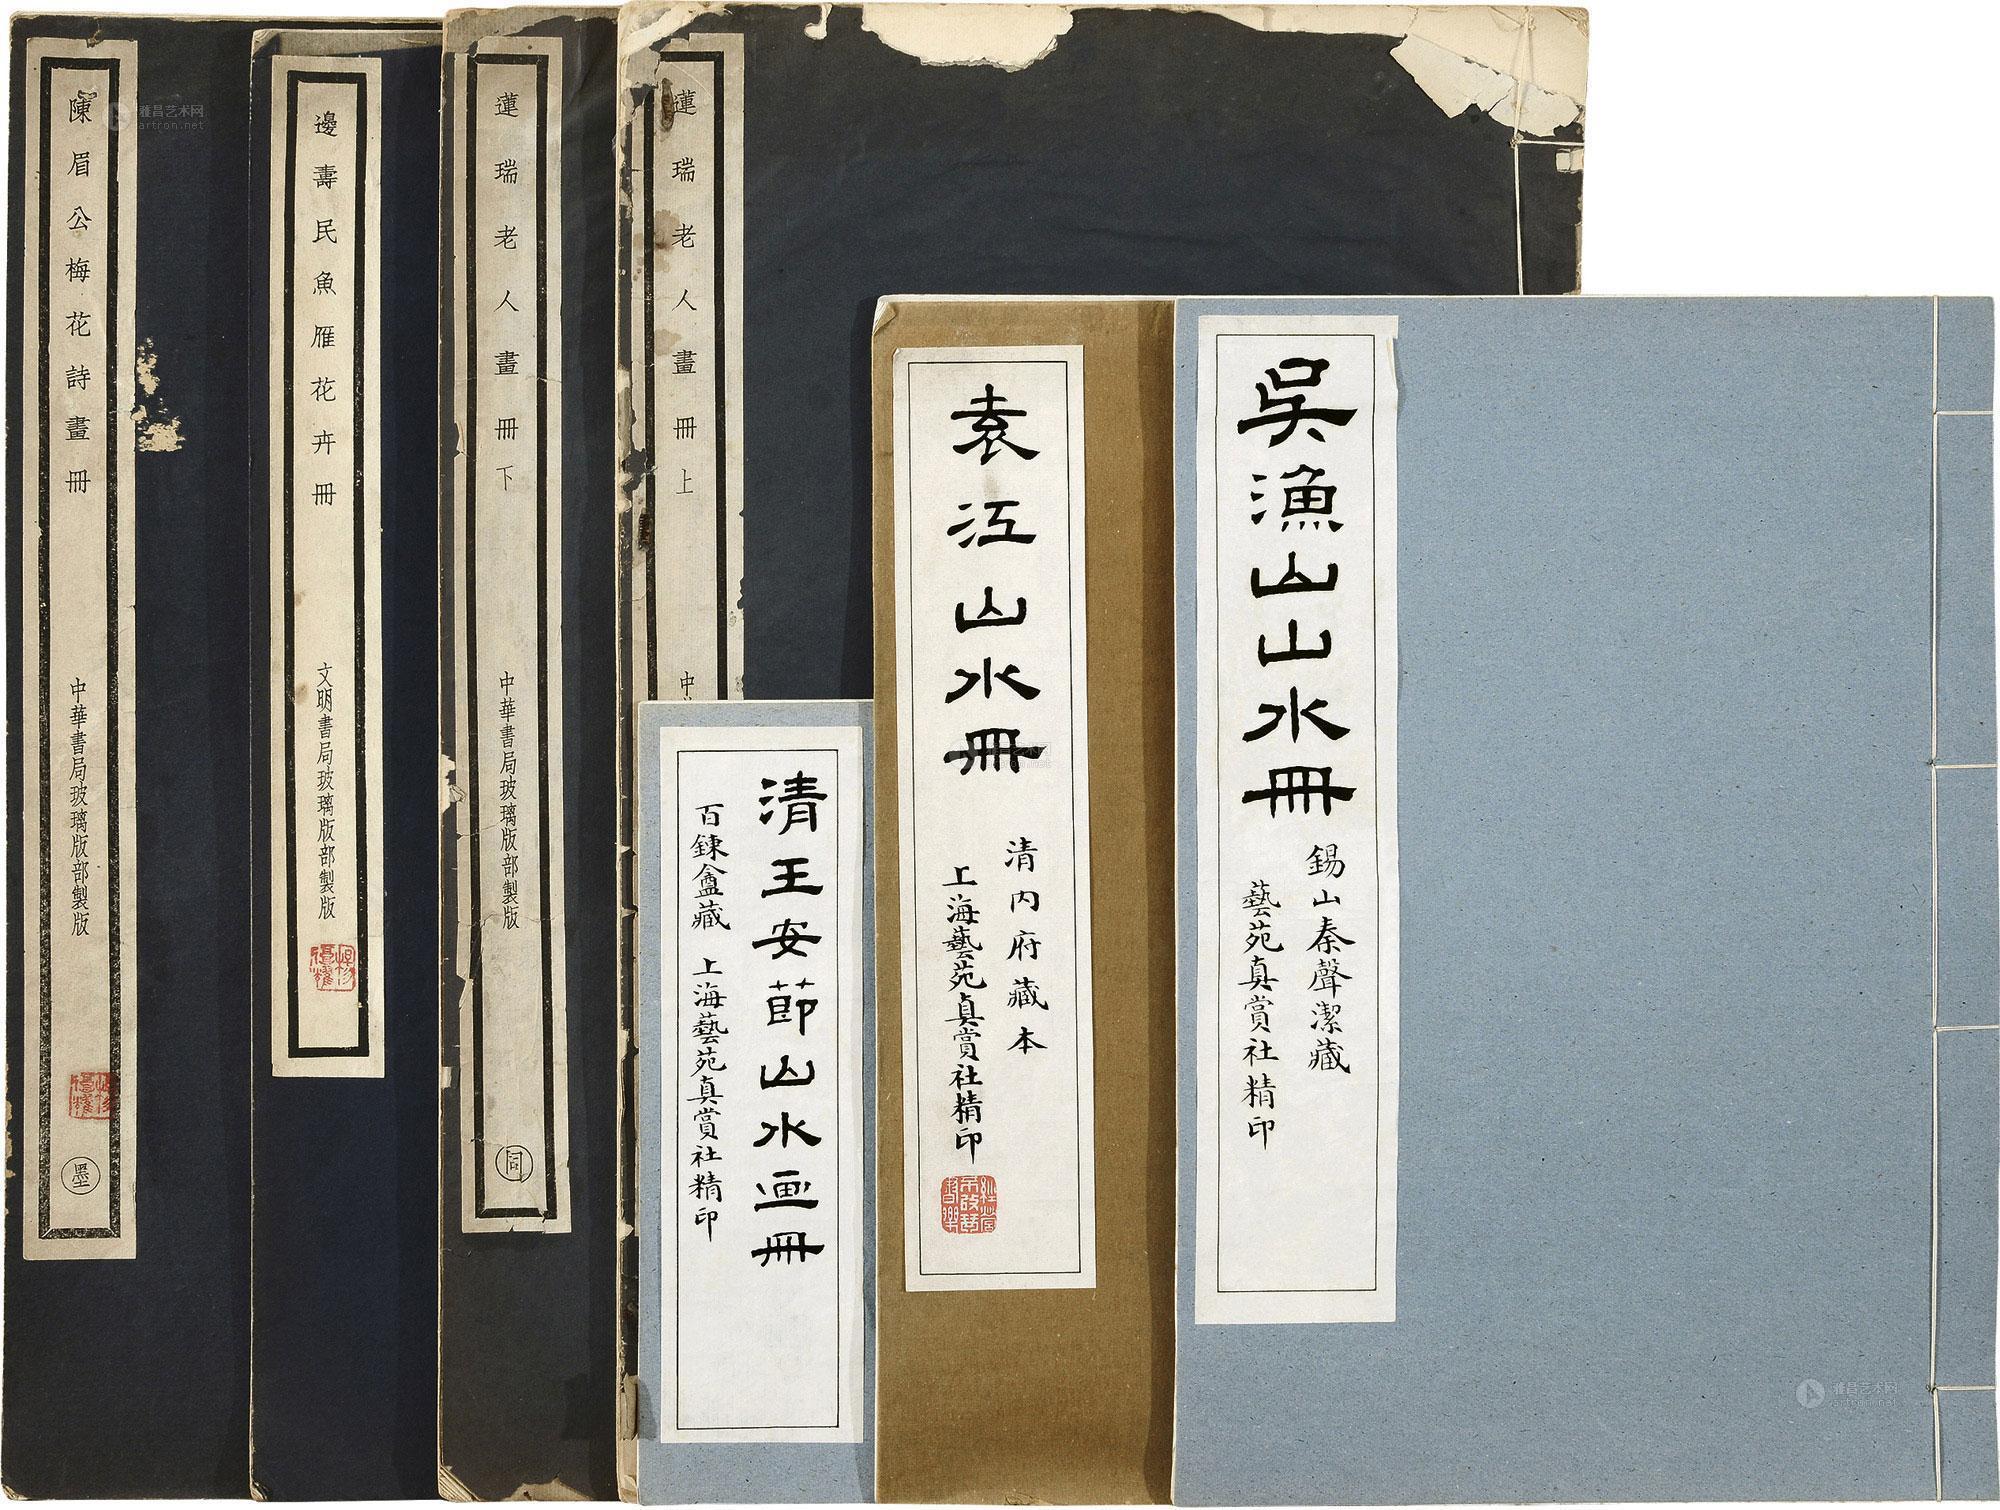 陳眉公梅花詩畫冊
中華書局玻璃版部製版
墨
邊壽民魚雁花卉冊
文明書局玻璃版部製版
蓮瑞老人畫冊下
中華書局玻璃版部製版
同
蓮瑞老人畫冊上
中
清王安節山水画冊
百鍊盦藏 上海藝苑真賞社精印
袁江山水冊
清内府藏本
上海藝苑真賞社精印
吳漁山山水冊
錫山秦聲潔藏
藝苑真賞社精印
雅昌艺术网
artron.net
雅昌艺术网
artron.net